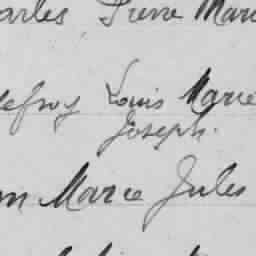 arles Pierre Mari
defroy Louis Marie
Joseph.
m Marie Jules